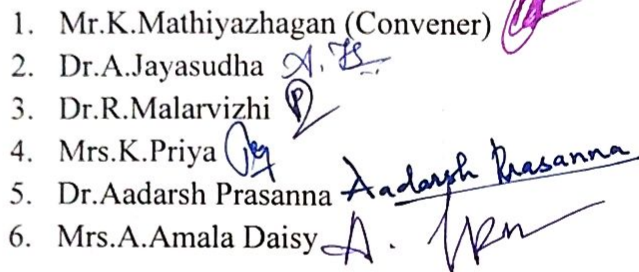 1. Mr.K.Mathiyazhagan (Convener)
2. Dr.A.Jayasudha
3. Dr.R.Malarvizhi
4. Mrs.K.Priya
5. Dr.Aadarsh Prasanna Aadarsh Prasanna
6. Mrs.A.Amala Daisy A.